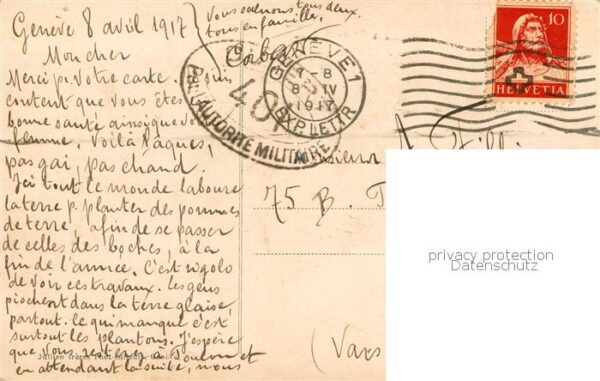 Genève 8 avril 1917
Mon cher
Merci p. votre carte. Je suis
content que vous êtes
bonne santé ainsi que vo
femme. Voilà Pâques,
pas gai, pas chaud.
Ici tout le monde laboure
la terre p. planter des pommes
de terre, afin de se passer
de celles des boches, à la
fin de l'année. C'est rigolo
de voir ces travaux. Les gens
piochent dans la terre glaise,
partout. Ce qui manque c'est
surtout les plantons. J'espère
que vous resterez à Toulon et
en attendant la suite, nous
vous saluons tous deux,
tous en famille.
GENÈVE 1
8 IV
1917
EXP. LETTR
401
PAR AUTORITÉ MILITAIRE
10
HELVETIA
75 B.
(Vars
privacy protection
Datenschutz
Jullien frères